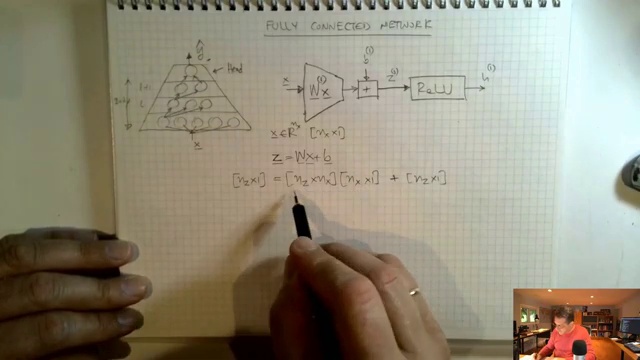 FULLY CONNECTED NETWORK
ŷ
Head
l+1
l
x
x
W x
(1)
b
(1)
+
z
(1)
ReLU
h
(1)
x ∈ R^nx [nx x 1]
z = Wx + b
[nz x 1] = [nz x nx] [nx x 1] + [nz x 1]